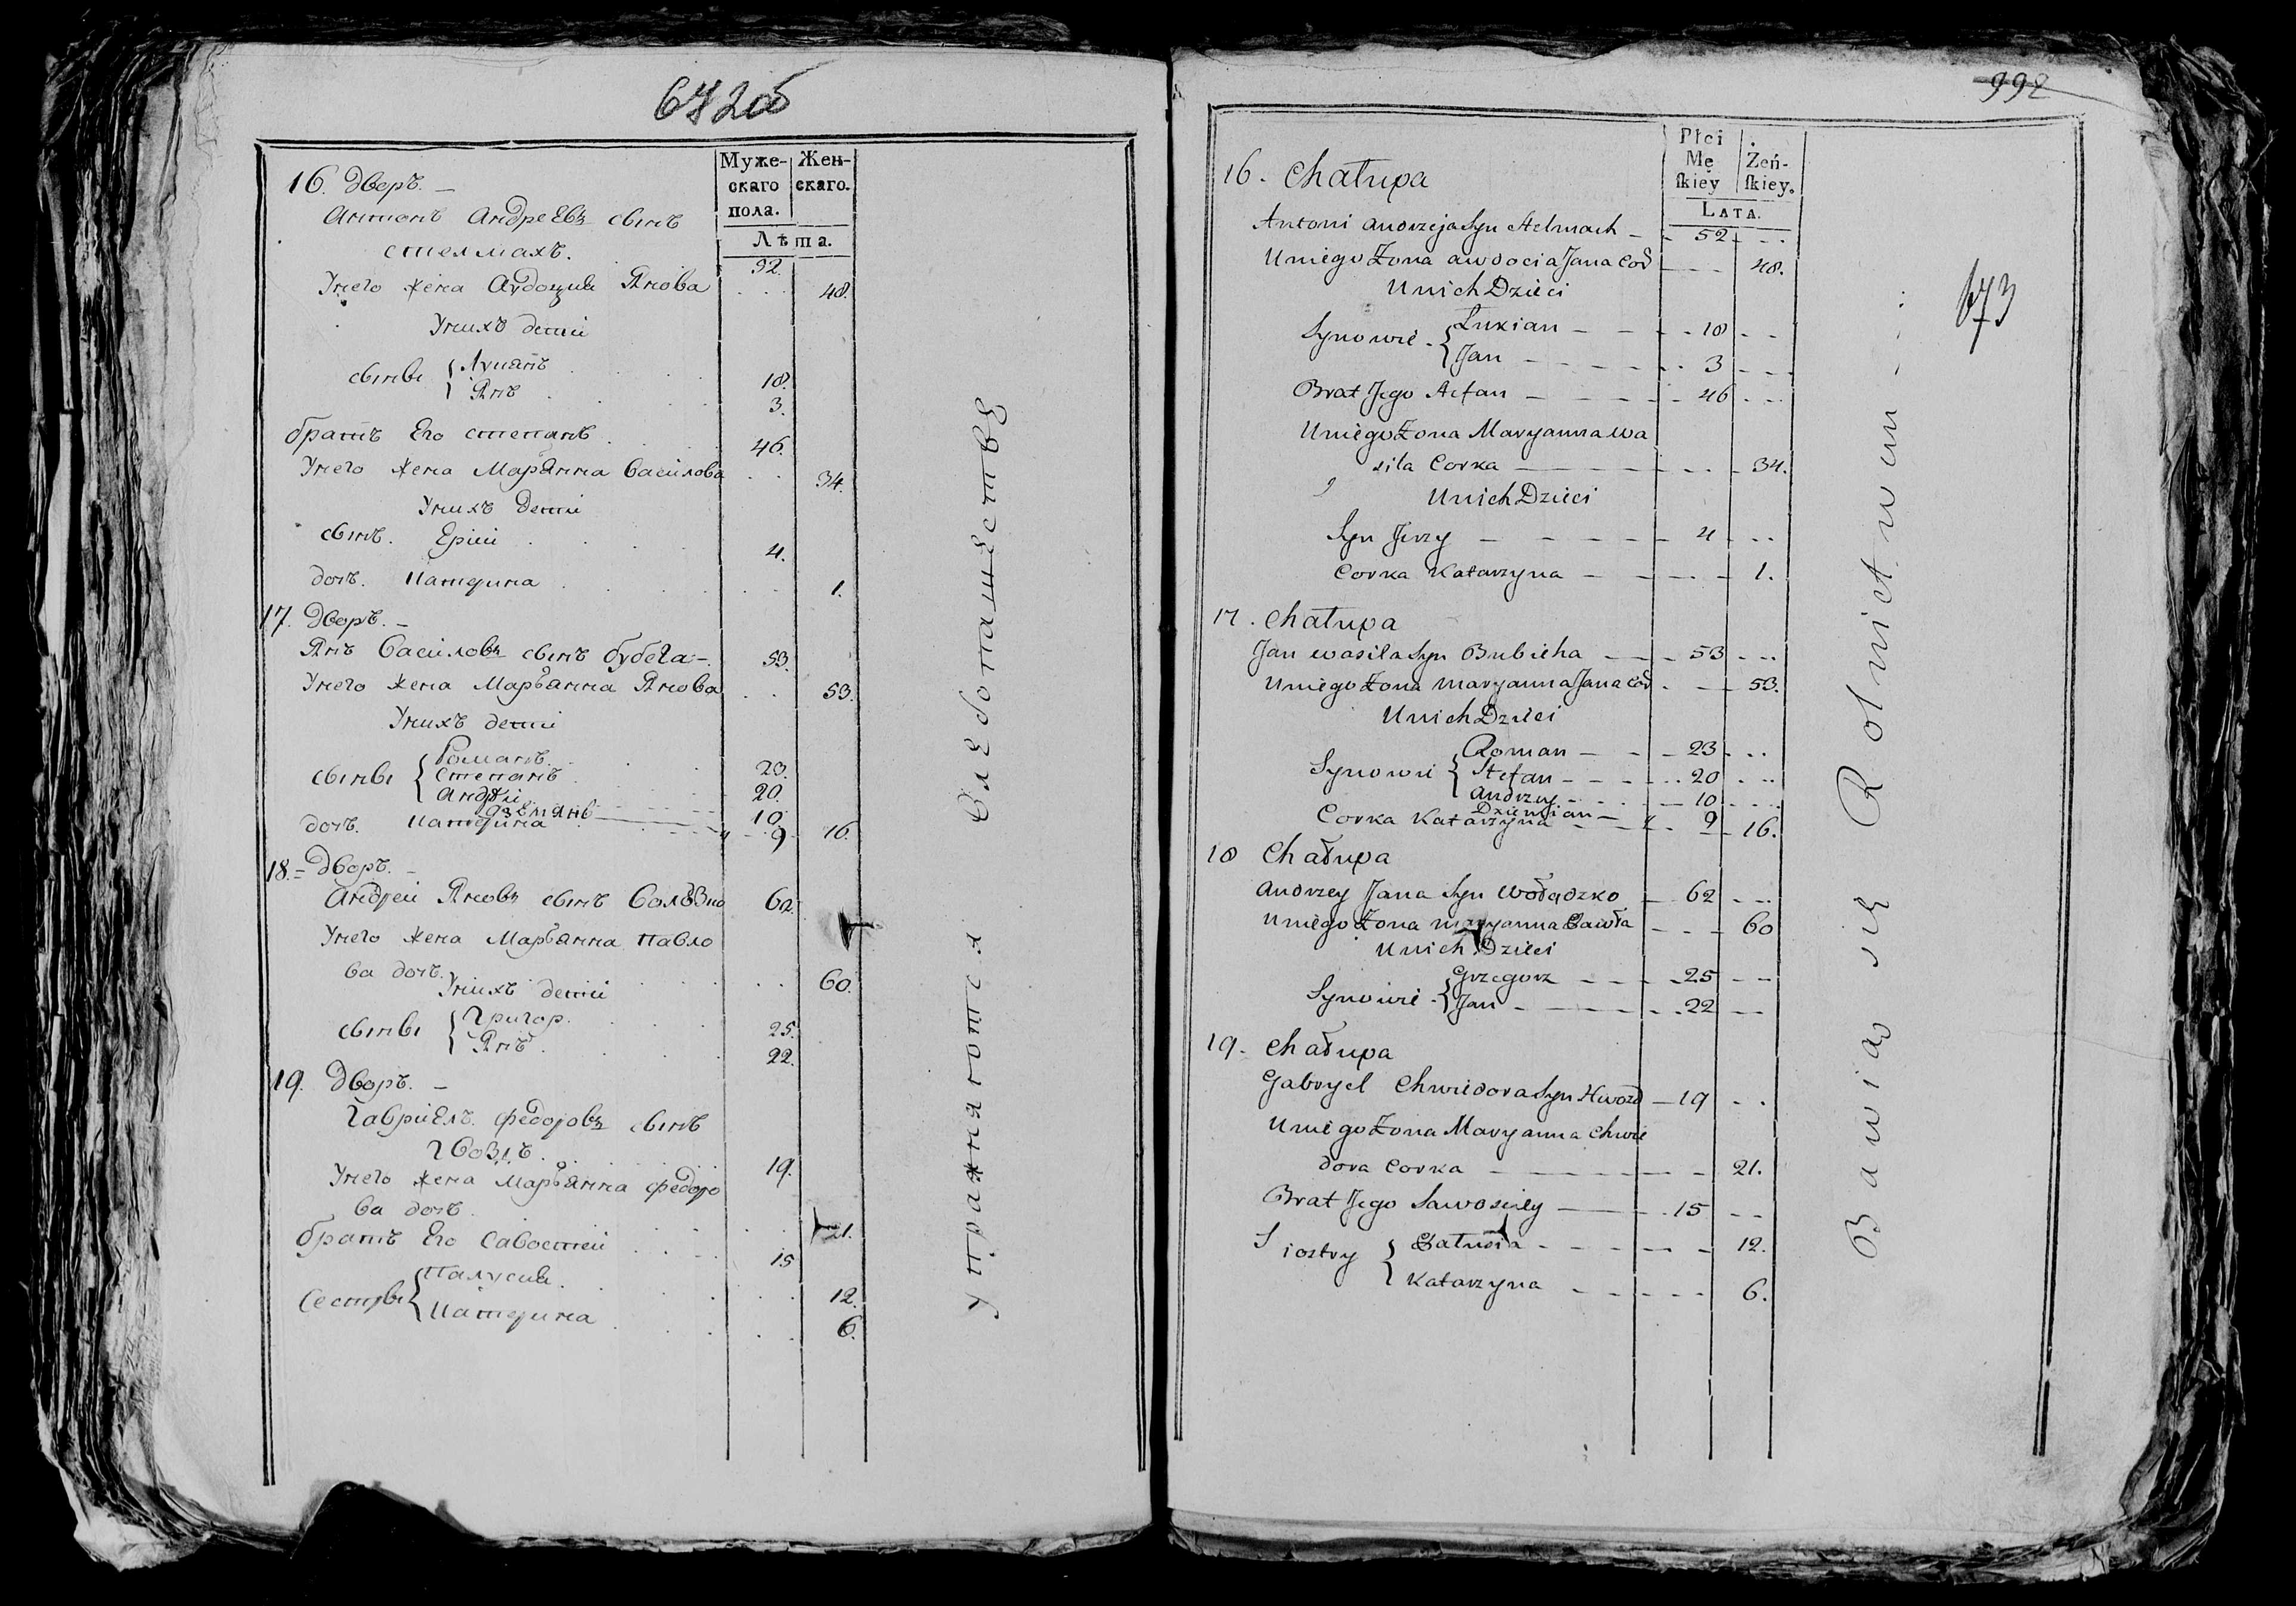 672об
Муже- Жен-
скаго скаго.
пола.
Лѣта.
16. дворъ. –
Антонъ Андреевъ сынъ
стелмахъ. 52.
У него жена Авдоция Янова 48.
У нихъ дети
сыны { Лукянъ 18.
Янъ 3.
братъ Его степанъ 46.
У него жена Маръянна Василова 34.
У нихъ дети
сынъ. Ерiй 4.
дочь. Катерина 1.
17. дворъ. –
Янъ Василовъ сынъ бубеха – 53.
У него жена Маръянна Янова 53.
У нихъ дети
сыны { Романъ. 23.
степанъ 20.
Андрей 10.
дземянъ 9
дочь. Катерина 16.
18. – дворъ. –
Андрей Яновъ сынъ 62.
У него жена Маръянна павло
ва дочь. 60.
У нихъ дети
сыны { Григор. 25.
Янъ 22.
19. дворъ. –
Гавриелъ федоровъ сынъ
19.
У него жена Маръянна федоро
ва дочь 21.
братъ Его Савостей 15
сестры { палуся. 12.
Катерина 6.
упражняются Хлебопашестве
992
673
Płci
Mę Żeń-
ſkiey ſkiey.
LATA.
16. Chałupa
Antoni Andrzeja Syn Stelmach – 52
U niego Żona Awdocia Jana Cod 48.
U nich Dzieci
Synowie { Łukian 18
Jan 3
Brat Jego Stefan 46
U niego Żona Maryanna Wa
sila Corka 34.
U nich Dzieci
Syn Jerzy 4
Corka Katarzyna 1.
17. Chałupa
Jan Wasila Syn Bubicha 53
U niego Żona Maryanna Jana Cod 53.
U nich Dzieci
Synowie { Roman 23
Stefan 20
Andrzey 10
Dziemian 9
Corka Katarzyna 16.
18 Chałupa
Andrzey Jana Syn Wołądzko 62
U niego Żona Maryanna Pawła 60
U nich Dzieci
Synowie { Grzegorz 25
Jan 22
19. Chałupa
Gabryel Chwiedora Syn Hwozd 19
U niego Żona Maryanna Chwie
dora Corka 21.
Brat Jego Sawosciey 15
Siostry { Patusia 12.
Katarzyna 6.
Bawiąo się Rolnictwem